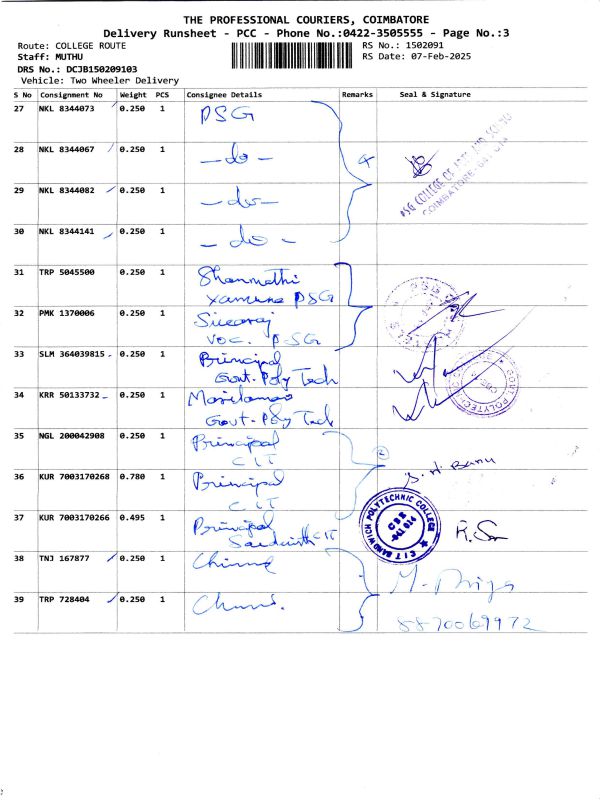 THE PROFESSIONAL COURIERS, COIMBATORE
Delivery Runsheet - PCC - Phone No.:0422-3505555 - Page No.:3
Route: COLLEGE ROUTE RS No.: 1502091
Staff: MUTHU RS Date: 07-Feb-2025
DRS No.: DCJB150209103
Vehicle: Two Wheeler Delivery
S No Consignment No Weight PCS Consignee Details Remarks Seal & Signature
27 NKL 8344073 0.250 1 PSG
28 NKL 8344067 0.250 1 - do -
29 NKL 8344082 0.250 1 - do -
30 NKL 8344141 0.250 1 - do -
PSG COLLEGE OF ARTS AND
COIMBATORE
31 TRP 5045500 0.250 1 Shanmathi
PSG
32 PMK 1370006 0.250 1
Voc. PSG
33 SLM 364039815 0.250 1 Principal
Govt. Poly Tech
34 KRR 50133732 0.250 1
Govt. Poly Tech
35 NGL 200042908 0.250 1 Principal
CIT
36 KUR 7003170268 0.780 1 Principal
CIT
2
37 KUR 7003170266 0.495 1 Principal
Sandwich CIT
CIT SANDWICH POLYTECHNIC COLLEGE
CBE
641 014
38 TNJ 167877 0.250 1
39 TRP 728404 0.250 1
M. Priya
8870069972